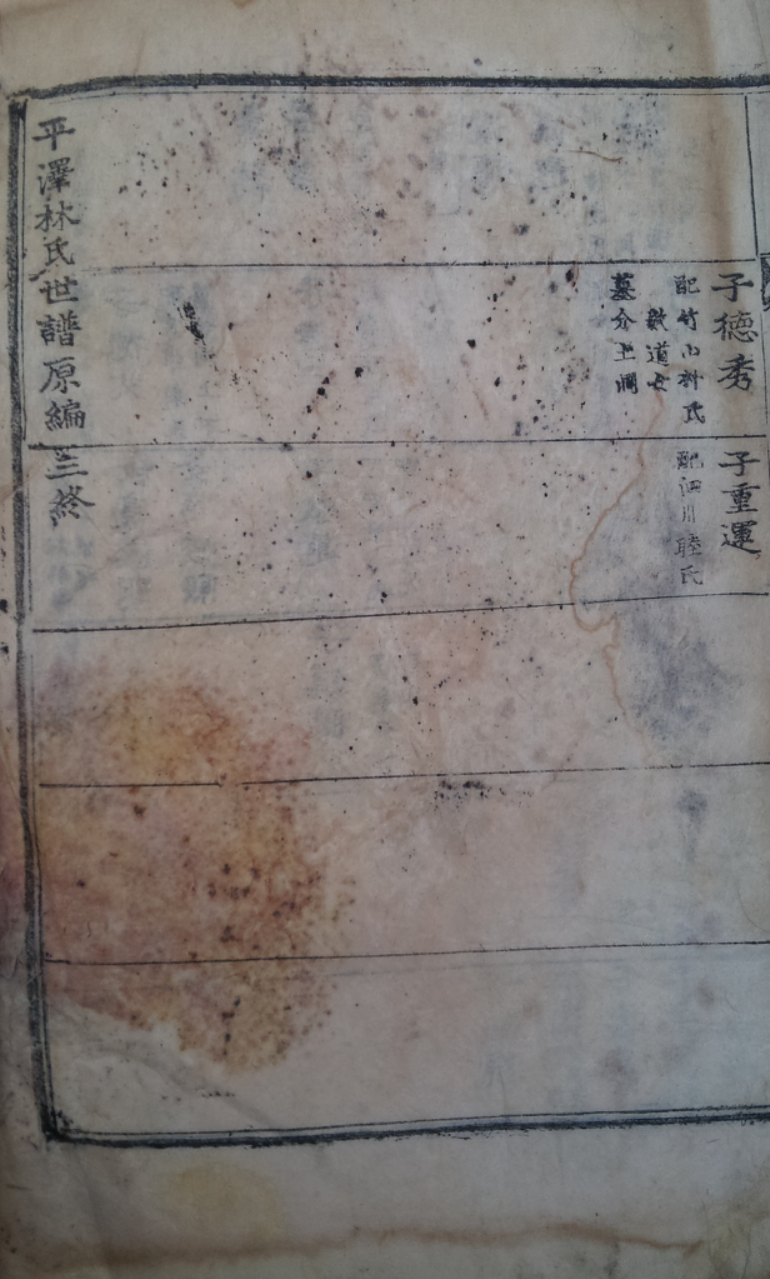 子德秀
配竹山朴氏
致道女
墓介土洞
子重運
配泗川睦氏
平澤林氏世譜原編三終